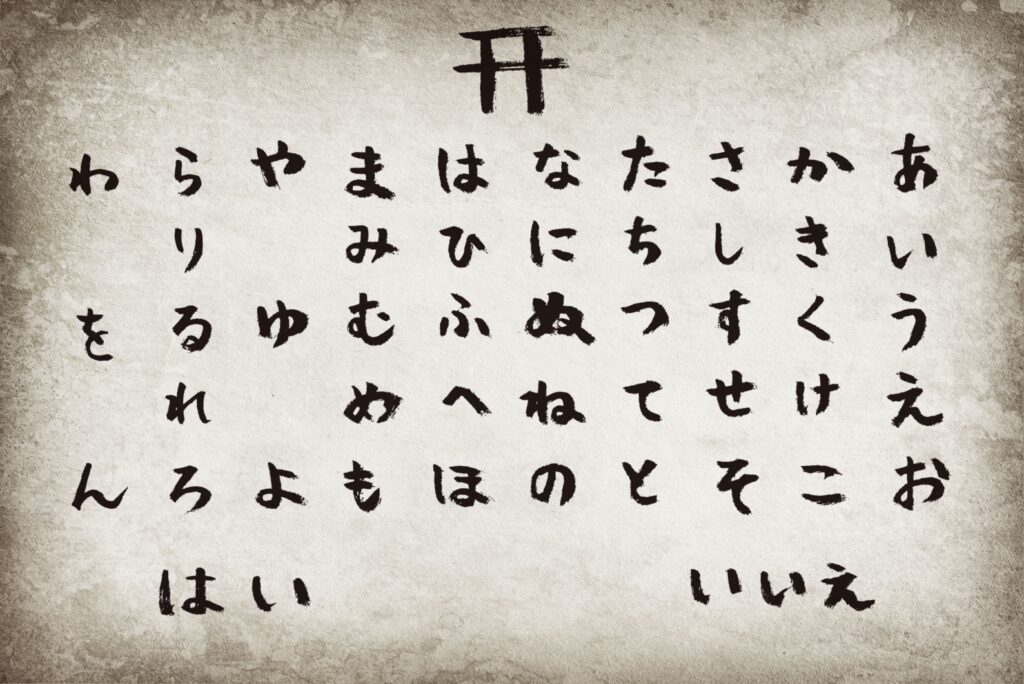 あいうえお
かきくけこ
さしすせそ
たちつてと
なにぬねの
はひふへほ
まみむめも
やゆよ
らりるれろ
わをん
はい
いいえ